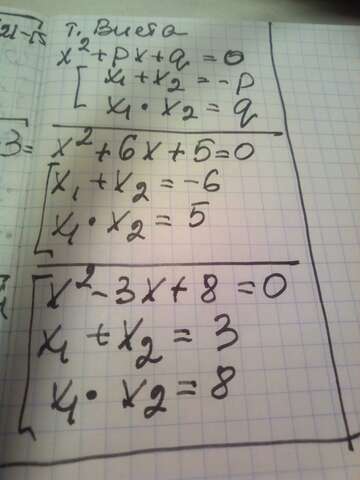 т. Виета
x² + px + q = 0
x₁ + x₂ = -p
x₁ · x₂ = q
x² + 6x + 5 = 0
x₁ + x₂ = -6
x₁ · x₂ = 5
x² - 3x + 8 = 0
x₁ + x₂ = 3
x₁ · x₂ = 8